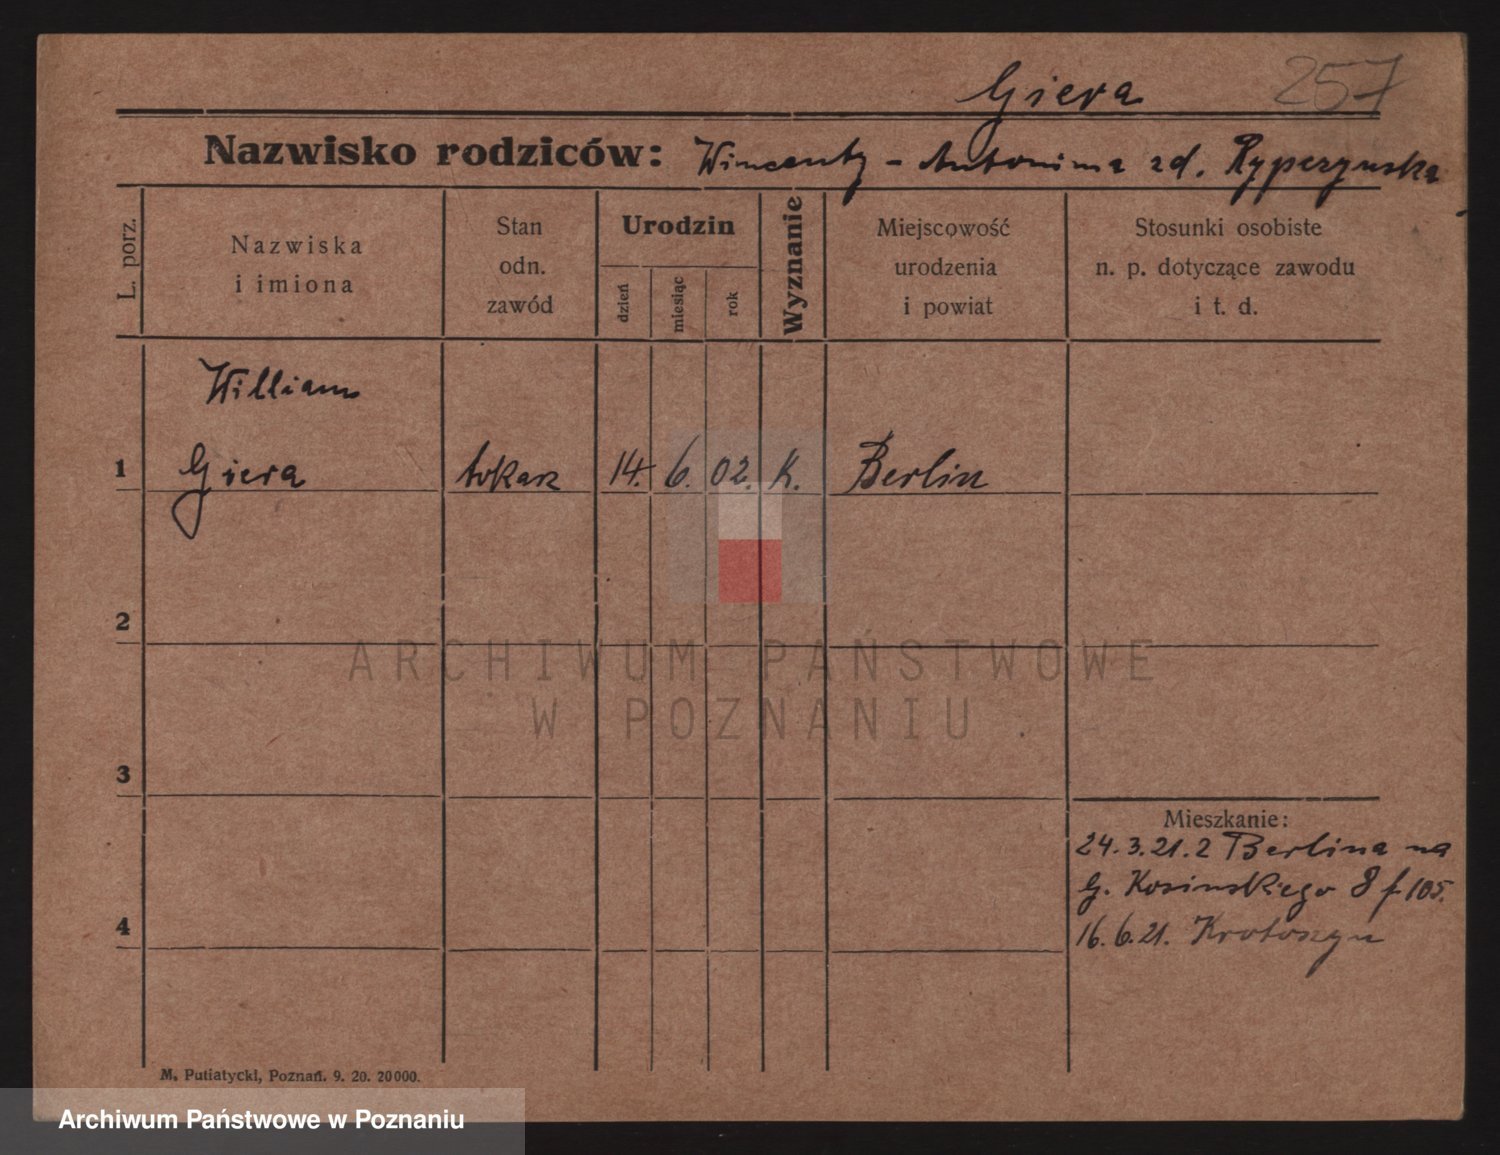 Giera 257
Nazwisko rodziców: Wincenty - Antonina zd.
L. porz.
Nazwiska i imiona
Stan odn. zawód
Urodzin
dzień
miesiąc
rok
Wyznanie
Miejscowość urodzenia i powiat
Stosunki osobiste n. p. dotyczące zawodu i t. d.
William
1 Giera tokarz 14. 6. 02. K. Berlin
2
ARCHIWUM PAŃSTWOWE
W POZNANIU
3
Mieszkanie:
24.3.21. z Berlina na
G. Kosinskiego 8 f 105.
4
16.6.21. Krotoszyn
M. Putiatycki, Poznań. 9. 20. 20000.
Archiwum Państwowe w Poznaniu